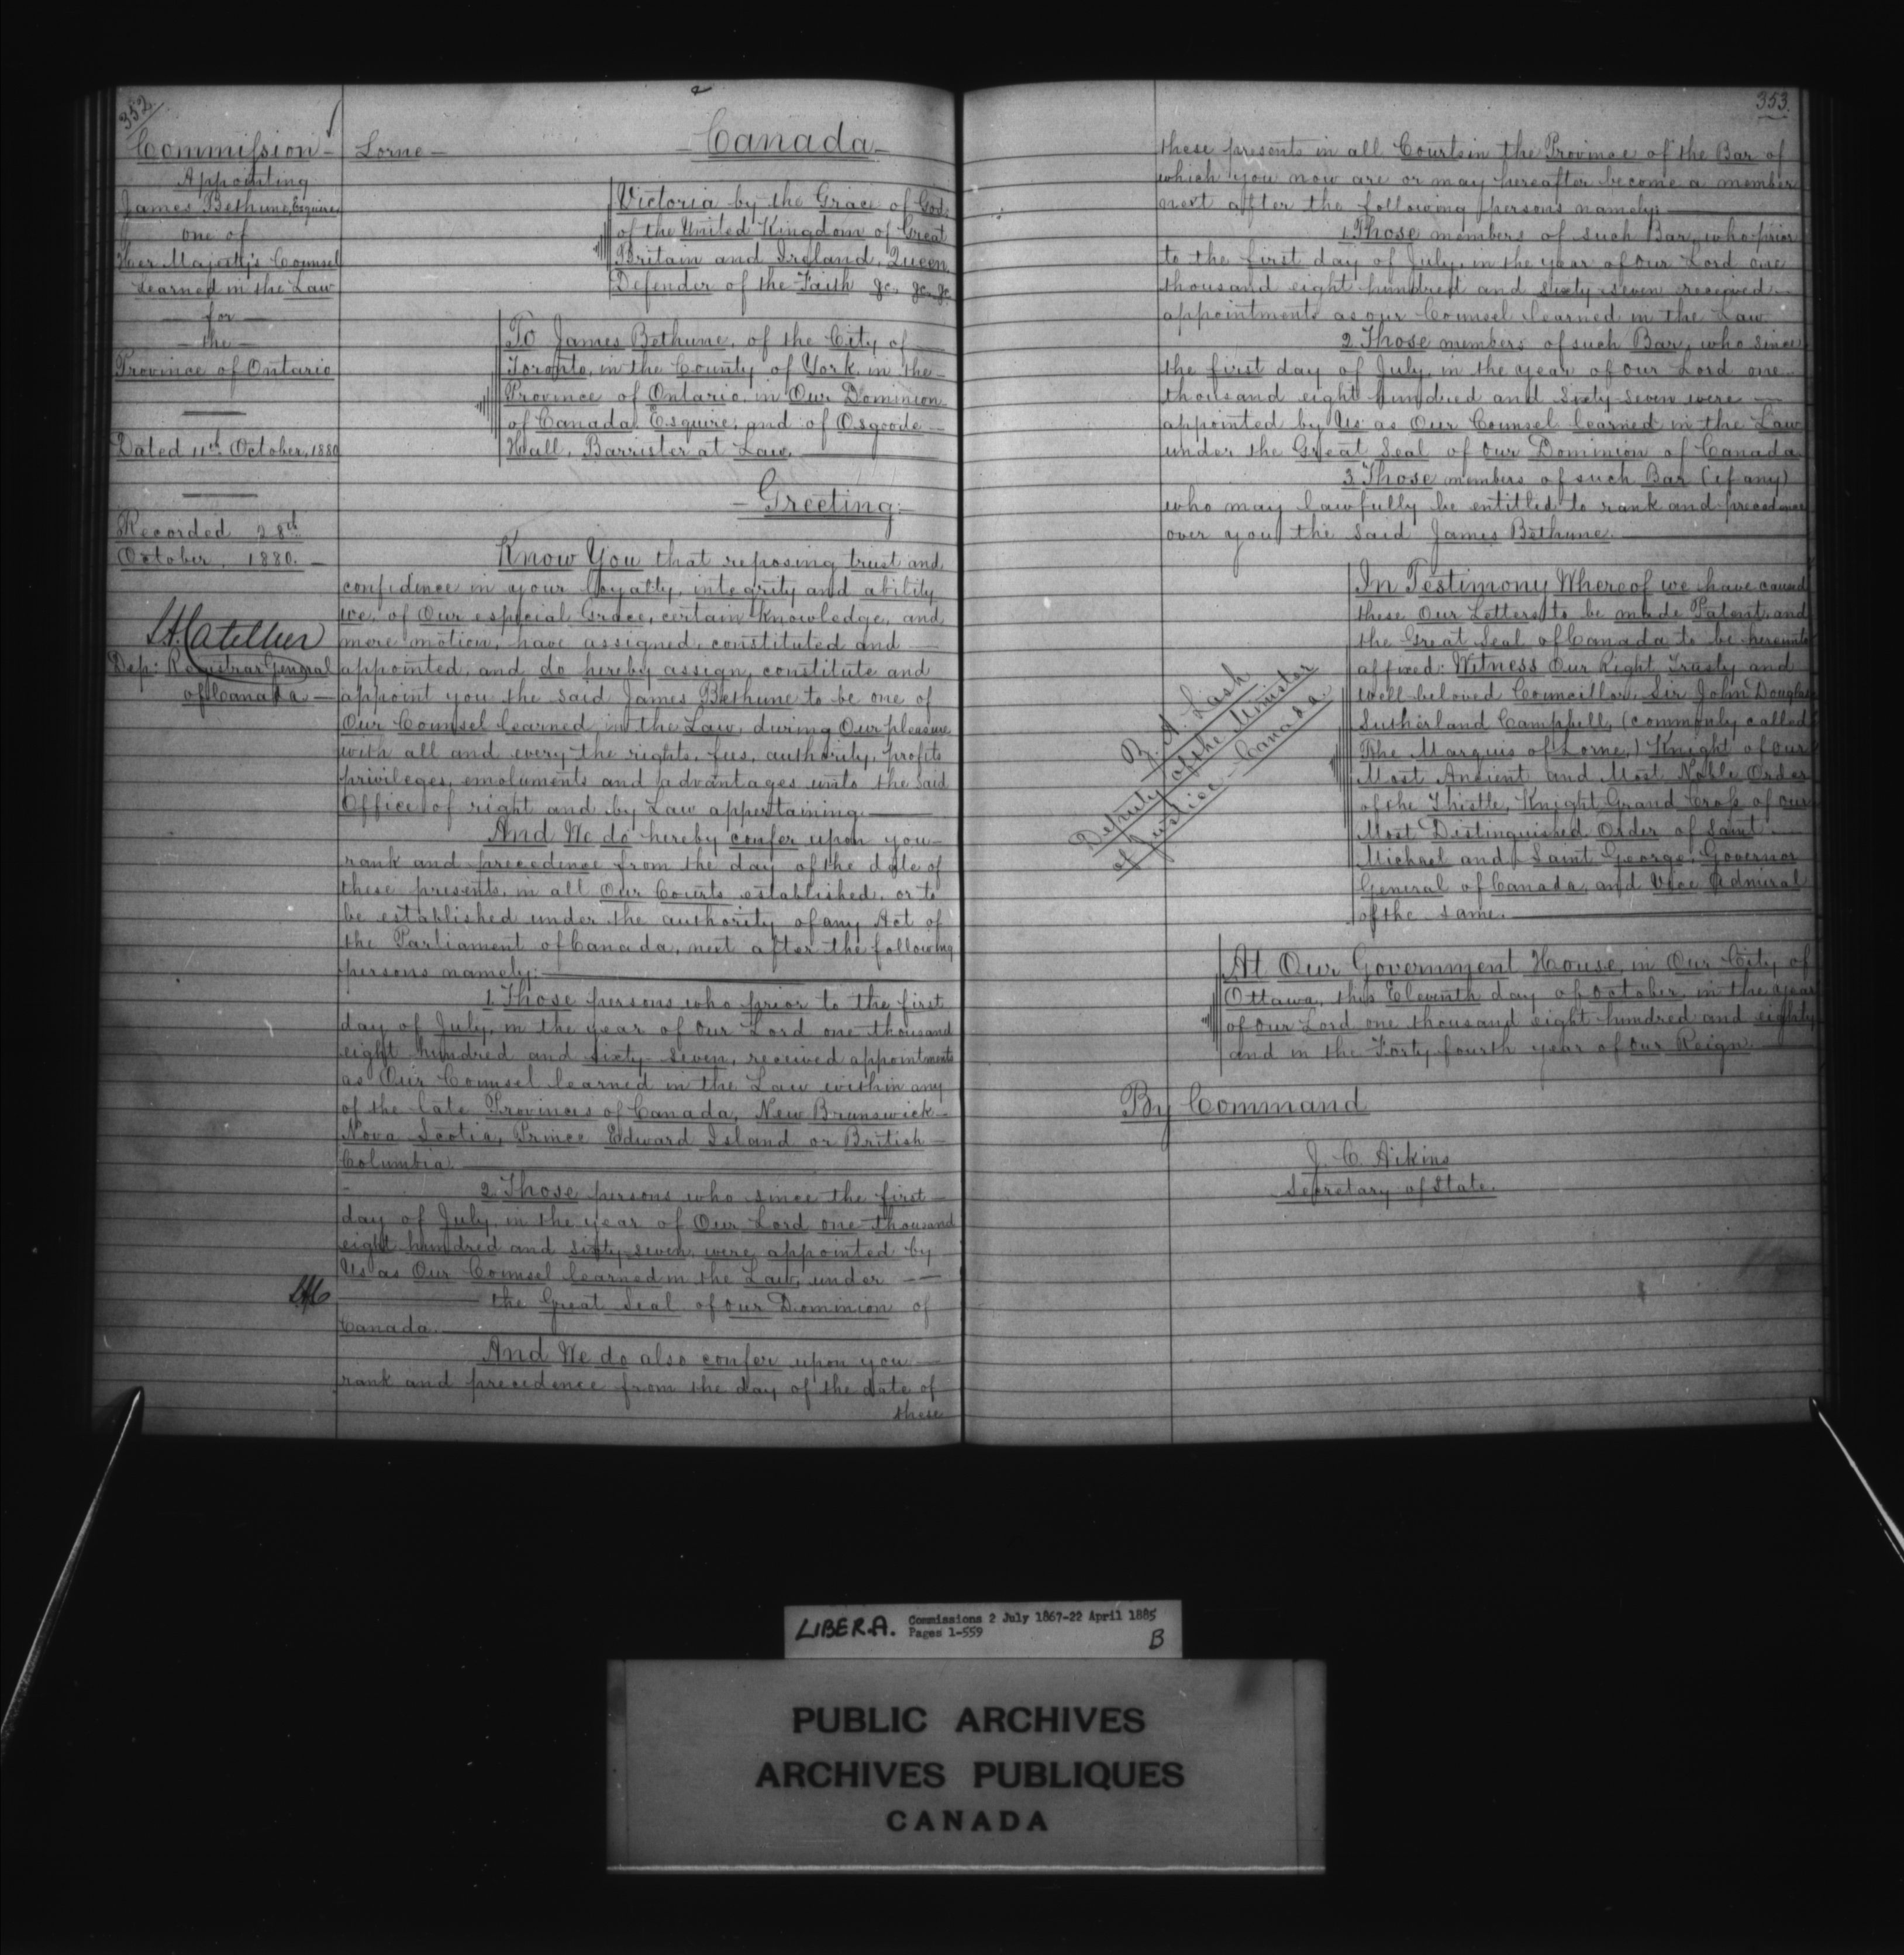 352
Commission
Appointing
James Bethune, Esquire,
one of
Her Majesty's Counsel
learned in the Law
for
the
Province of Ontario
Dated 11th October, 1880
Recorded 28th
October, 1880.
Dep: Registrar General
of Canada
Lorne
Canada
Victoria by the Grace of God,
of the United Kingdom of Great
Britain and Ireland, Queen,
Defender of the Faith &c. &c. &c.
To James Bethune, of the City of
Toronto, in the County of York, in the
Province of Ontario, in Our Dominion
of Canada, Esquire, and of Osgoode
Hall, Barrister at Law,
Greeting:
Know You that reposing trust and
confidence in your loyalty, integrity and ability
we, of Our especial Grace, certain knowledge, and
mere motion, have assigned, constituted and
appointed, and do hereby assign, constitute and
appoint you the said James Bethune to be one of
Our Counsel learned in the Law, during Our pleasure
with all and every the rights, fees, authority, profits
privileges, emoluments and advantages unto the said
Office of right and by Law appertaining.
And We do hereby confer upon you
rank and precedence from the day of the date of
these presents, in all Our Courts established, or to
be established under the authority of any Act of
the Parliament of Canada, next after the following
persons namely:
1. Those persons who prior to the first
day of July, in the year of Our Lord one thousand
eight hundred and sixty-seven, received appointments
as Our Counsel learned in the Law within any
of the late Provinces of Canada, New Brunswick
Nova Scotia, Prince Edward Island or British
Columbia.
2. Those persons who since the first
day of July in the year of Our Lord one thousand
eight hundred and sixty-seven, were appointed by
Us as Our Counsel learned in the Law, under
the Great Seal of our Dominion of
Canada.
And We do also confer upon you
rank and precedence from the day of the date of
these
353.
these presents in all Courts in the Province of the Bar of
which you now are or may hereafter become a member
next after the following persons namely:
1. Those members of such Bar, who prior
to the first day of July, in the year of our Lord one
thousand eight hundred and sixty seven received
appointments as our Counsel learned in the Law
2. Those members of such Bar, who since
the first day of July, in the year of our Lord one
thousand eight hundred and sixty-seven were
appointed by Us as Our Counsel learned in the Law
under the Great Seal of Our Dominion of Canada.
3. Those members of such Bar (if any)
who may lawfully be entitled to rank and precedence
over you the said James Bethune.
In Testimony Whereof we have caused
these Our Letters to be made Patent, and
the Great Seal of Canada to be hereunto
affixed: Witness Our Right Trusty and
Well-beloved Councillor Sir John Douglas
Sutherland Campbell, (commonly called
The Marquis of Lorne,) Knight of Our
Most Ancient and Most Noble Order
of the Thistle, Knight Grand Cross of our
Most Distinguished Order of Saint
Michael and Saint George, Governor
General of Canada, and Vice Admiral
of the same.
Z. A. Lash
Deputy of the Minister
of Justice - Canada.
At Our Government House, in Our City of
Ottawa, this Eleventh day of October, in the year
of Our Lord one thousand eight hundred and eighty
and in the Forty fourth year of Our Reign.
By Command
J. C. Aikins
Secretary of State.
LIBER.A. Commissions 2 July 1867-22 April 1885
Pages 1-559
B
PUBLIC ARCHIVES
ARCHIVES PUBLIQUES
CANADA